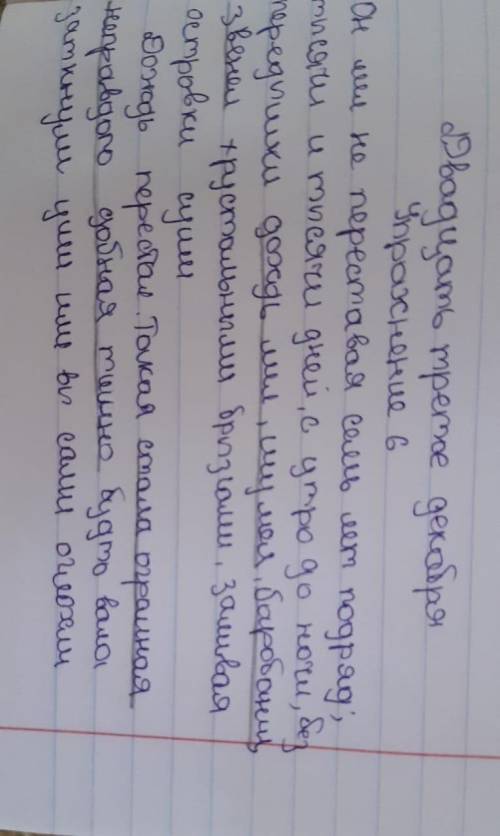 Двадцать третье декабря
Упражнение 6
Он лил не переставая семь лет подряд;
тысячи и тысячи дней, с утро до ночи, без
передышки дождь лил, шумел, барабанил
звенел хрустальными брызгами, заливая
островки суши
Дождь перестал. Такая стала огромная
неправдопо добная тишина будто вата
заткнули уши или вы сами оглохли